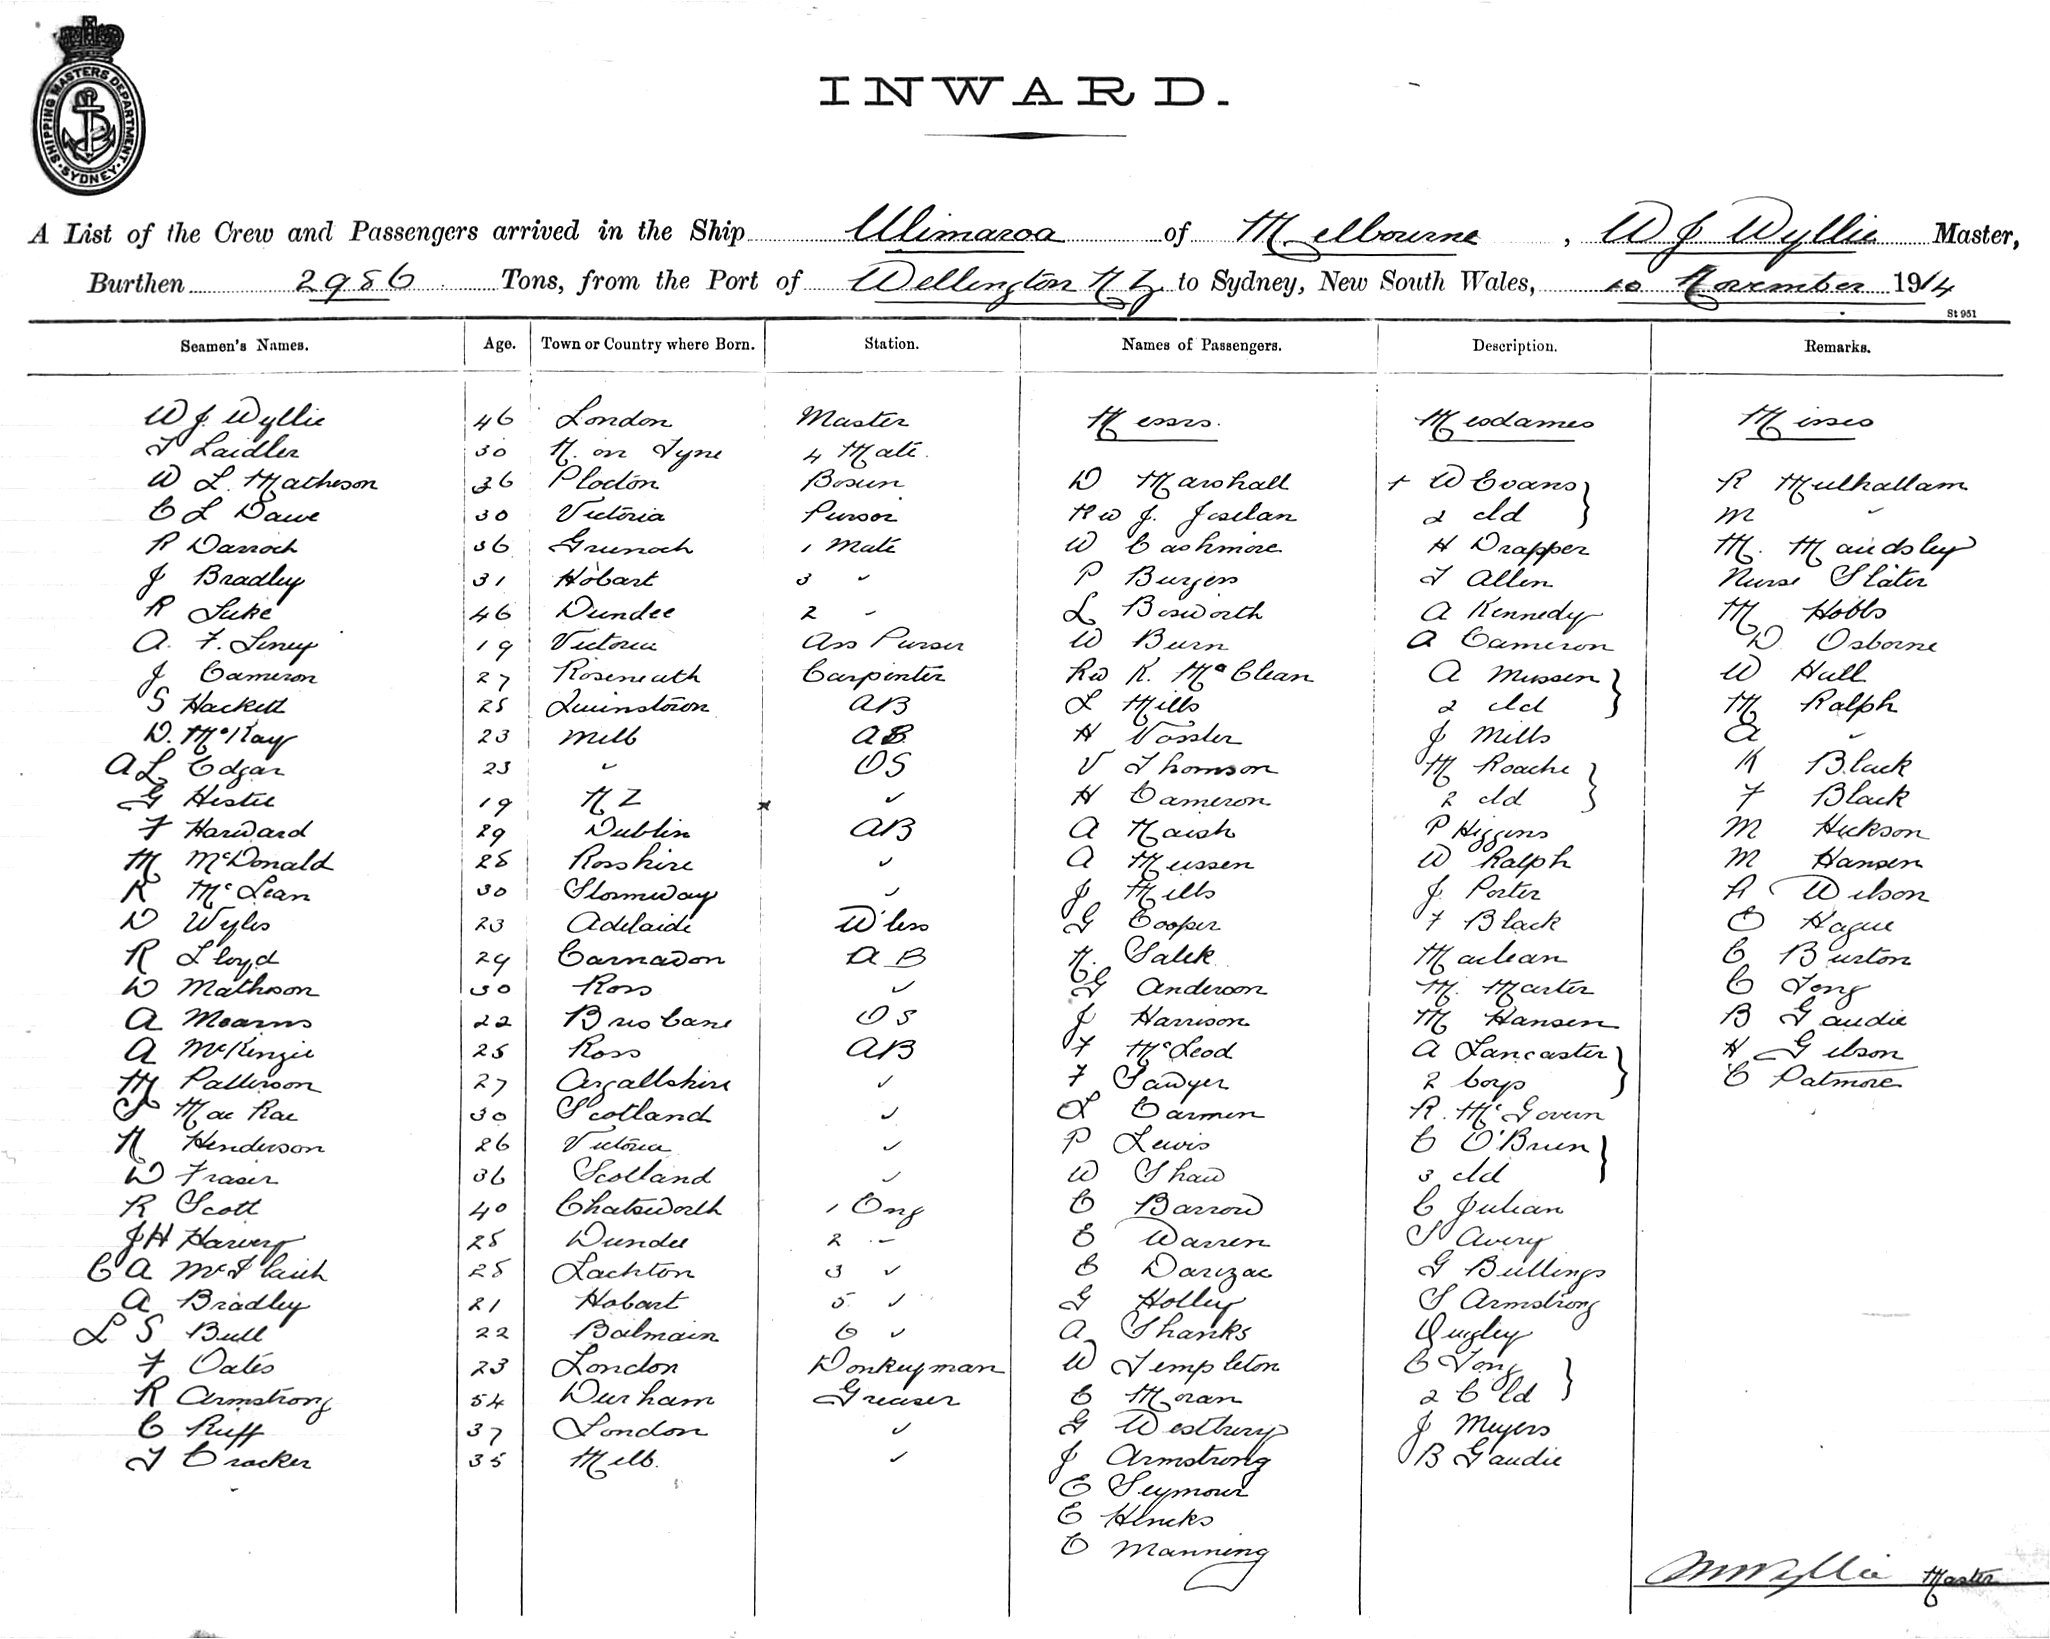 SHIPPING MASTERS DEPARTMENT · SYDNEY ·
INWARD.
A List of the Crew and Passengers arrived in the Ship Ulimaroa of Melbourne, W J Wyllie Master,
Burthen 2986 Tons, from the Port of Wellington N Z to Sydney, New South Wales, 10 November 1914
St 951
Seamen's Names. Age. Town or Country where Born. Station. Names of Passengers. Description. Remarks.
W J Wyllie 46 London Master Messrs. Mesdames Misses
T Laidler 30 N. on Tyne 4 Mate.
W L. Matheson 36 Plocton Bosun D Marshall + W Evans } R Mulhallam
C L Dawe 30 Victoria Pursor Rev J. Joselan 2 cld M "
R Darroch 36 Grunoch 1 Mate W Cashmore H Drapper M. Maudsley
J Bradley 31 Hobart 3 " P Burgess T Allen Nurse Slater
R Luke 46 Dundee 2 " L Bosworth A Kennedy M Hobbs
A. F. Liney 19 Victoria Ass Purser W Burn A Cameron D. Osborne
J Cameron 27 Roseneath Carpenter Rev K. McClean A Mussen } W Hull
S Hackett 25 Quinstown AB L Mills 2 cld M Ralph
D. McKay 23 Melb AB H Vossler J Mills A "
A L Edgar 23 " OS V Thomson M Roache } K Black
G Hestie 19 N Z " H Cameron 2 cld F Black
F Harward 29 Dublin AB A Naish P Higgins M Hickson
M McDonald 28 Rosshire " A Mussen W Ralph M Hansen
K McLean 30 Stornway " J Mills J. Porter A Wilson
D Wyles 23 Adelaide W'less G Cooper F Black E Hague
R Lloyd 29 Carnavon A B N. Salek Maclean C Burton
D Matheson 30 Ross " G Anderson M. Marter C Tong
A Mearns 22 Brisbane OS J Harrison M Hansen B Gaudie
A McKenzie 25 Ross AB F McLeod A Lancaster } H Gibson
M Patterson 27 Argallshire " F Sawyer 2 boys C Patmore
S Mac Rae 30 Scotland " L Carmen R. McGovern
N Henderson 26 Victoria " P Lewis C O'Brien }
D Fraser 36 Scotland " W Shaw 3 cld
R Scott 40 Chatsworth 1 Eng C Barrow C Julian
J H Harvey 28 Dundee 2 " E Warren S Avery
C A 25 Lachton 3 " E Darizac G Bullings
A Bradley 21 Hobart 5 " G Holley S Armstrong
L S Bull 22 Balmain 6 " A Shanks Quigley
F Oates 23 London Donkeyman W Templeton C Tong }
R Armstrong 54 Durham Greaser E Moran 2 Cld
C Ruff 37 London " G Westbury J Meyers
T Crocker 35 Melb. " J Armstrong B Gaudie
E Seymour
E Hincks
E Manning
W J Wyllie Master